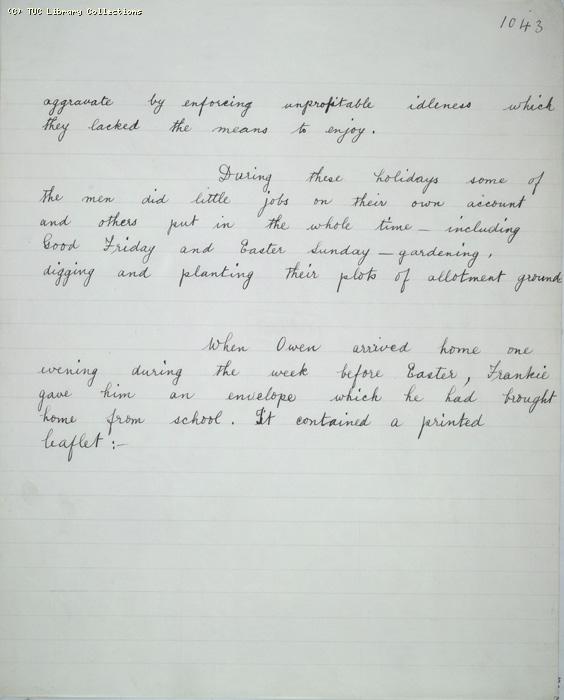 (C) TUC Library Collections
1043
aggravate by enforcing unprofitable idleness which
they lacked the means to enjoy.
During these holidays some of
the men did little jobs on their own account
and others put in the whole time – including
Good Friday and Easter Sunday – gardening,
digging and planting their plots of allotment ground
When Owen arrived home one
evening during the week before Easter, Frankie
gave him an envelope which he had brought
home from school. It contained a printed
leaflet :–